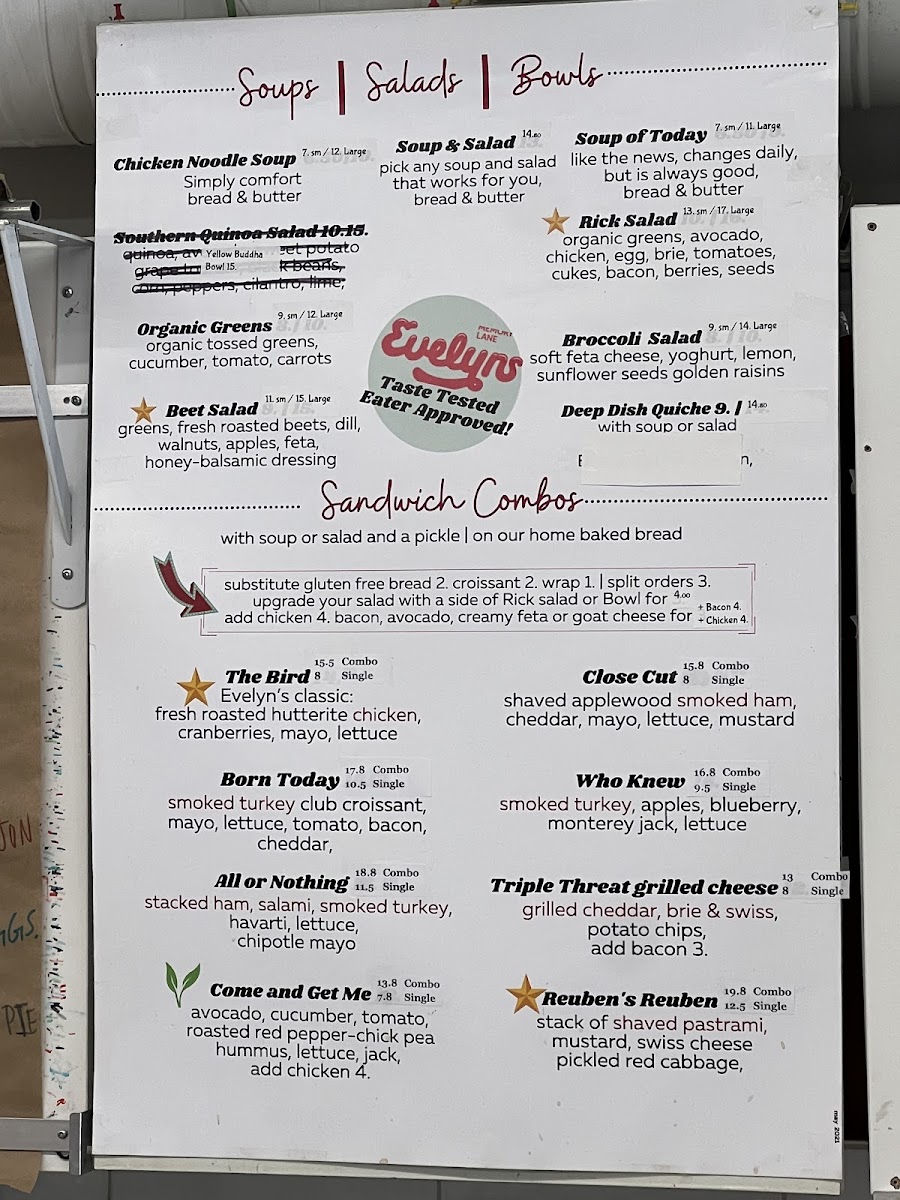 Soups | Salads | Bowls
Chicken Noodle Soup 7. sm / 12. Large
Simply comfort
bread & butter
Soup & Salad 14.80
pick any soup and salad
that works for you,
bread & butter
Soup of Today 7. sm / 11. Large
like the news, changes daily,
but is always good,
bread & butter
Southern Quinoa Salad 10.15.
quinoa, av Yellow Buddha et potato
grape to Bowl 15. k beans,
corn, peppers, cilantro, lime,
Rick Salad 13. sm / 17. Large
organic greens, avocado,
chicken, egg, brie, tomatoes,
cukes, bacon, berries, seeds
Organic Greens 9. sm / 12. Large
organic tossed greens,
cucumber, tomato, carrots
MEMORY
LANE
Evelyns
Taste Tested
Eater Approved!
Broccoli Salad 9. sm / 14. Large
soft feta cheese, yoghurt, lemon,
sunflower seeds golden raisins
Beet Salad 11. sm / 15. Large
greens, fresh roasted beets, dill,
walnuts, apples, feta,
honey-balsamic dressing
Deep Dish Quiche 9. / 14.80
with soup or salad
n,
Sandwich Combos
with soup or salad and a pickle | on our home baked bread
substitute gluten free bread 2. croissant 2. wrap 1. | split orders 3.
upgrade your salad with a side of Rick salad or Bowl for 4.00
add chicken 4. bacon, avocado, creamy feta or goat cheese for + Bacon 4.
+ Chicken 4.
The Bird 15.5 Combo
8 Single
Evelyn's classic:
fresh roasted hutterite chicken,
cranberries, mayo, lettuce
Close Cut 15.8 Combo
8 Single
shaved applewood smoked ham,
cheddar, mayo, lettuce, mustard
Born Today 17.8 Combo
10.5 Single
smoked turkey club croissant,
mayo, lettuce, tomato, bacon,
cheddar,
Who Knew 16.8 Combo
9.5 Single
smoked turkey, apples, blueberry,
monterey jack, lettuce
All or Nothing 18.8 Combo
11.5 Single
stacked ham, salami, smoked turkey,
havarti, lettuce,
chipotle mayo
Triple Threat grilled cheese 13 Combo
8 Single
grilled cheddar, brie & swiss,
potato chips,
add bacon 3.
Come and Get Me 13.8 Combo
7.8 Single
avocado, cucumber, tomato,
roasted red pepper-chick pea
hummus, lettuce, jack,
add chicken 4.
Reuben's Reuben 19.8 Combo
12.5 Single
stack of shaved pastrami,
mustard, swiss cheese
pickled red cabbage,
may 2021
GGS.
PIE